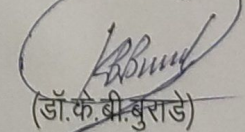 (डॉ.के.बी.बुराडे)